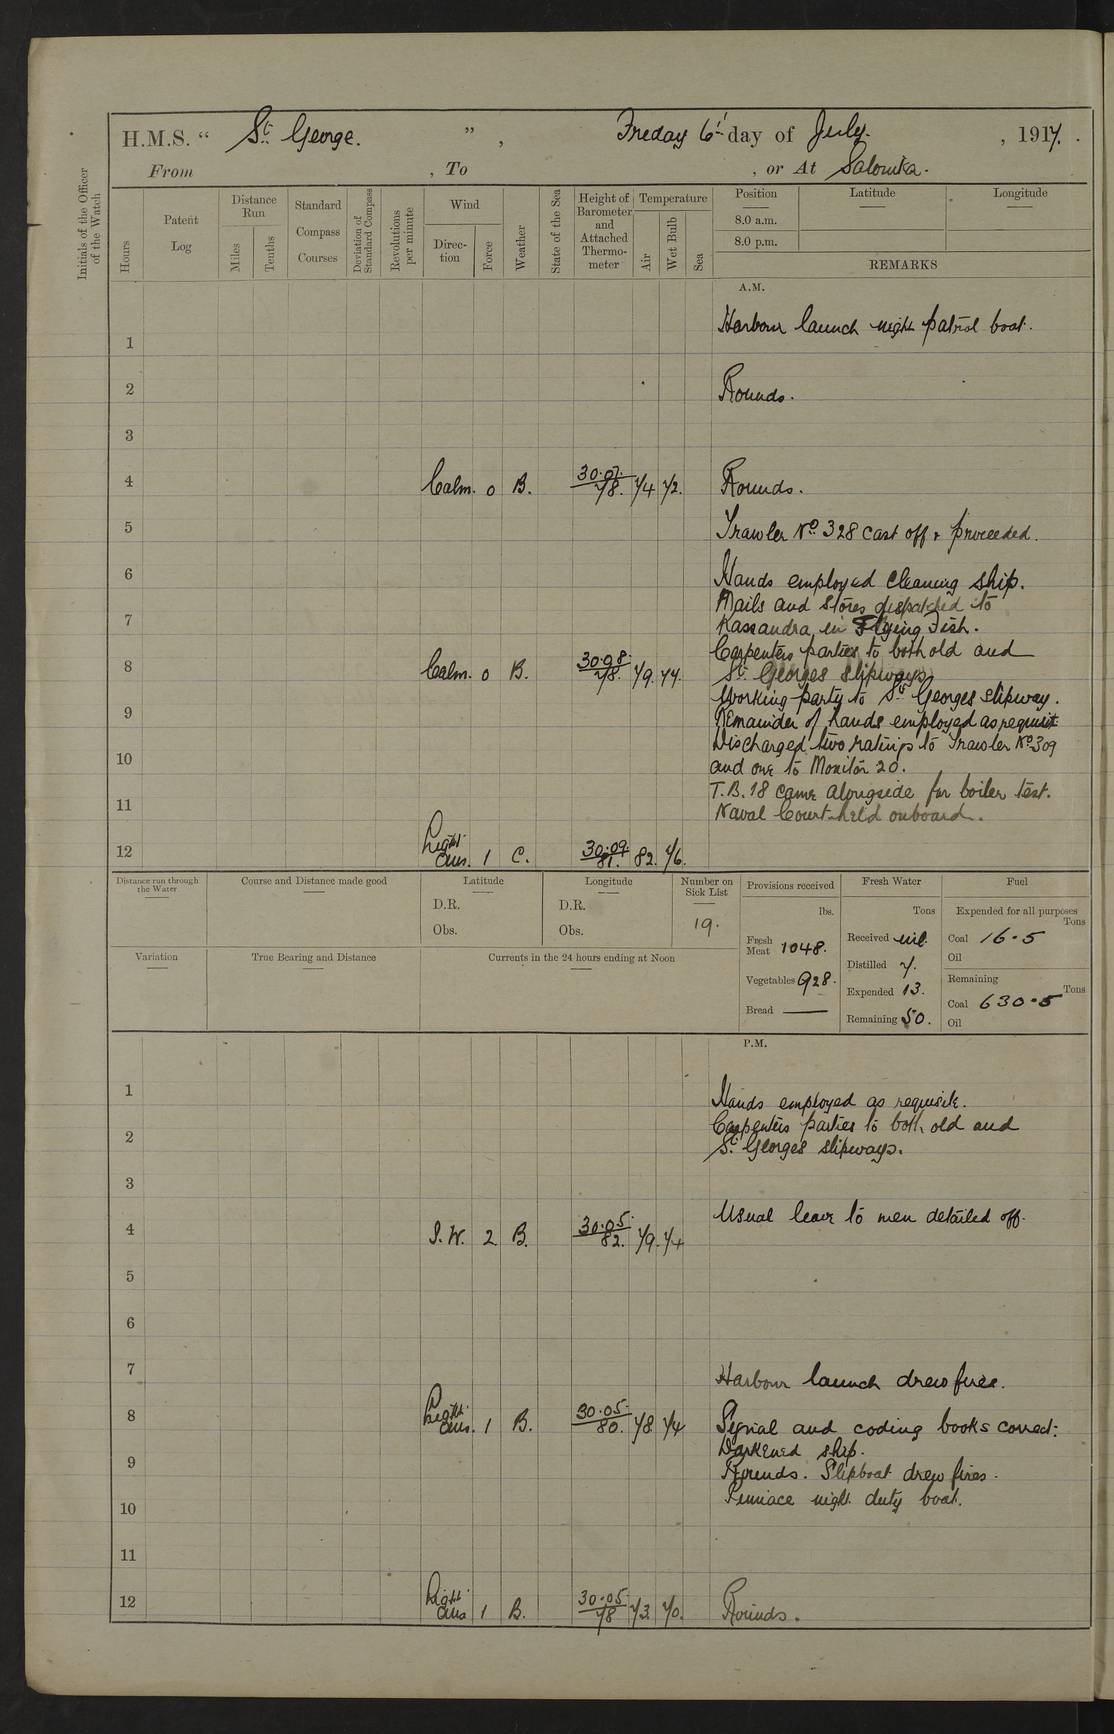 H.M.S. " St. George. ", Friday 6th day of July. , 1917.
From , To , or At Salonika.
Initials of the Officer of the Watch
Hours
Patent Log
Distance Run
Miles
Tenths
Standard Compass Courses
Deviation of Standard Compass
Revolutions per minute
Wind
Direc-tion
Force
Weather
State of the Sea
Height of Barometer and Attached Thermo-meter
Temperature
Air
Wet Bulb
Sea
Position
8.0 a.m.
8.0 p.m.
Latitude
Longitude
REMARKS
A.M.
Harbour launch night patrol boat.
1
2 Rounds.
3
4 Calm. 0 B. 30.07. 78. 74 72. Rounds.
5 Trawler No. 328 cast off & proceeded.
6 Hands employed cleaning ship.
Mails and stores dispatched to
7 Kassandra in Flying Fish.
Carpenters parties to both old and
8 Calm. 0 B. 30.08. 78. 79. 74. St. Georges slipways
Working party to St. Georges slipway.
9 Remainder of hands employed as requisit
Discharged two ratings to Trawler No. 309
10 and one to Monitor 20.
T.B. 18 came alongside for boiler test.
11 Naval Court held onboard.
12 Light airs. 1 C. 30.09. 81. 82. 76.
Distance run through the Water
Course and Distance made good
Latitude
D.R.
Obs.
Longitude
D.R.
Obs.
Number on Sick List
19.
Provisions received
lbs.
Fresh Meat 1048.
Vegetables 928.
Bread —
Fresh Water
Tons
Received nil.
Distilled 7.
Expended 13.
Remaining 50.
Fuel
Expended for all purposes
Tons
Coal 16.5
Oil
Remaining
Tons
Coal 630.5
Oil
Variation
True Bearing and Distance
Currents in the 24 hours ending at Noon
P.M.
1 Hands employed as requisite.
2 Carpenters parties to both old and
St. Georges slipways.
3
Usual leave to men detailed off.
4 S.W. 2. B. 30.05. 82. 79. 74
5
6
7 Harbour launch drew fires.
8 Light airs. 1 B. 30.05. 80. 78 74 Signal and coding books correct.
Darkened ship.
9 Rounds. Slipboat drew fires.
10 Pinnace night duty boat.
11
12 Light airs 1 B. 30.05. 78 73. 70. Rounds.